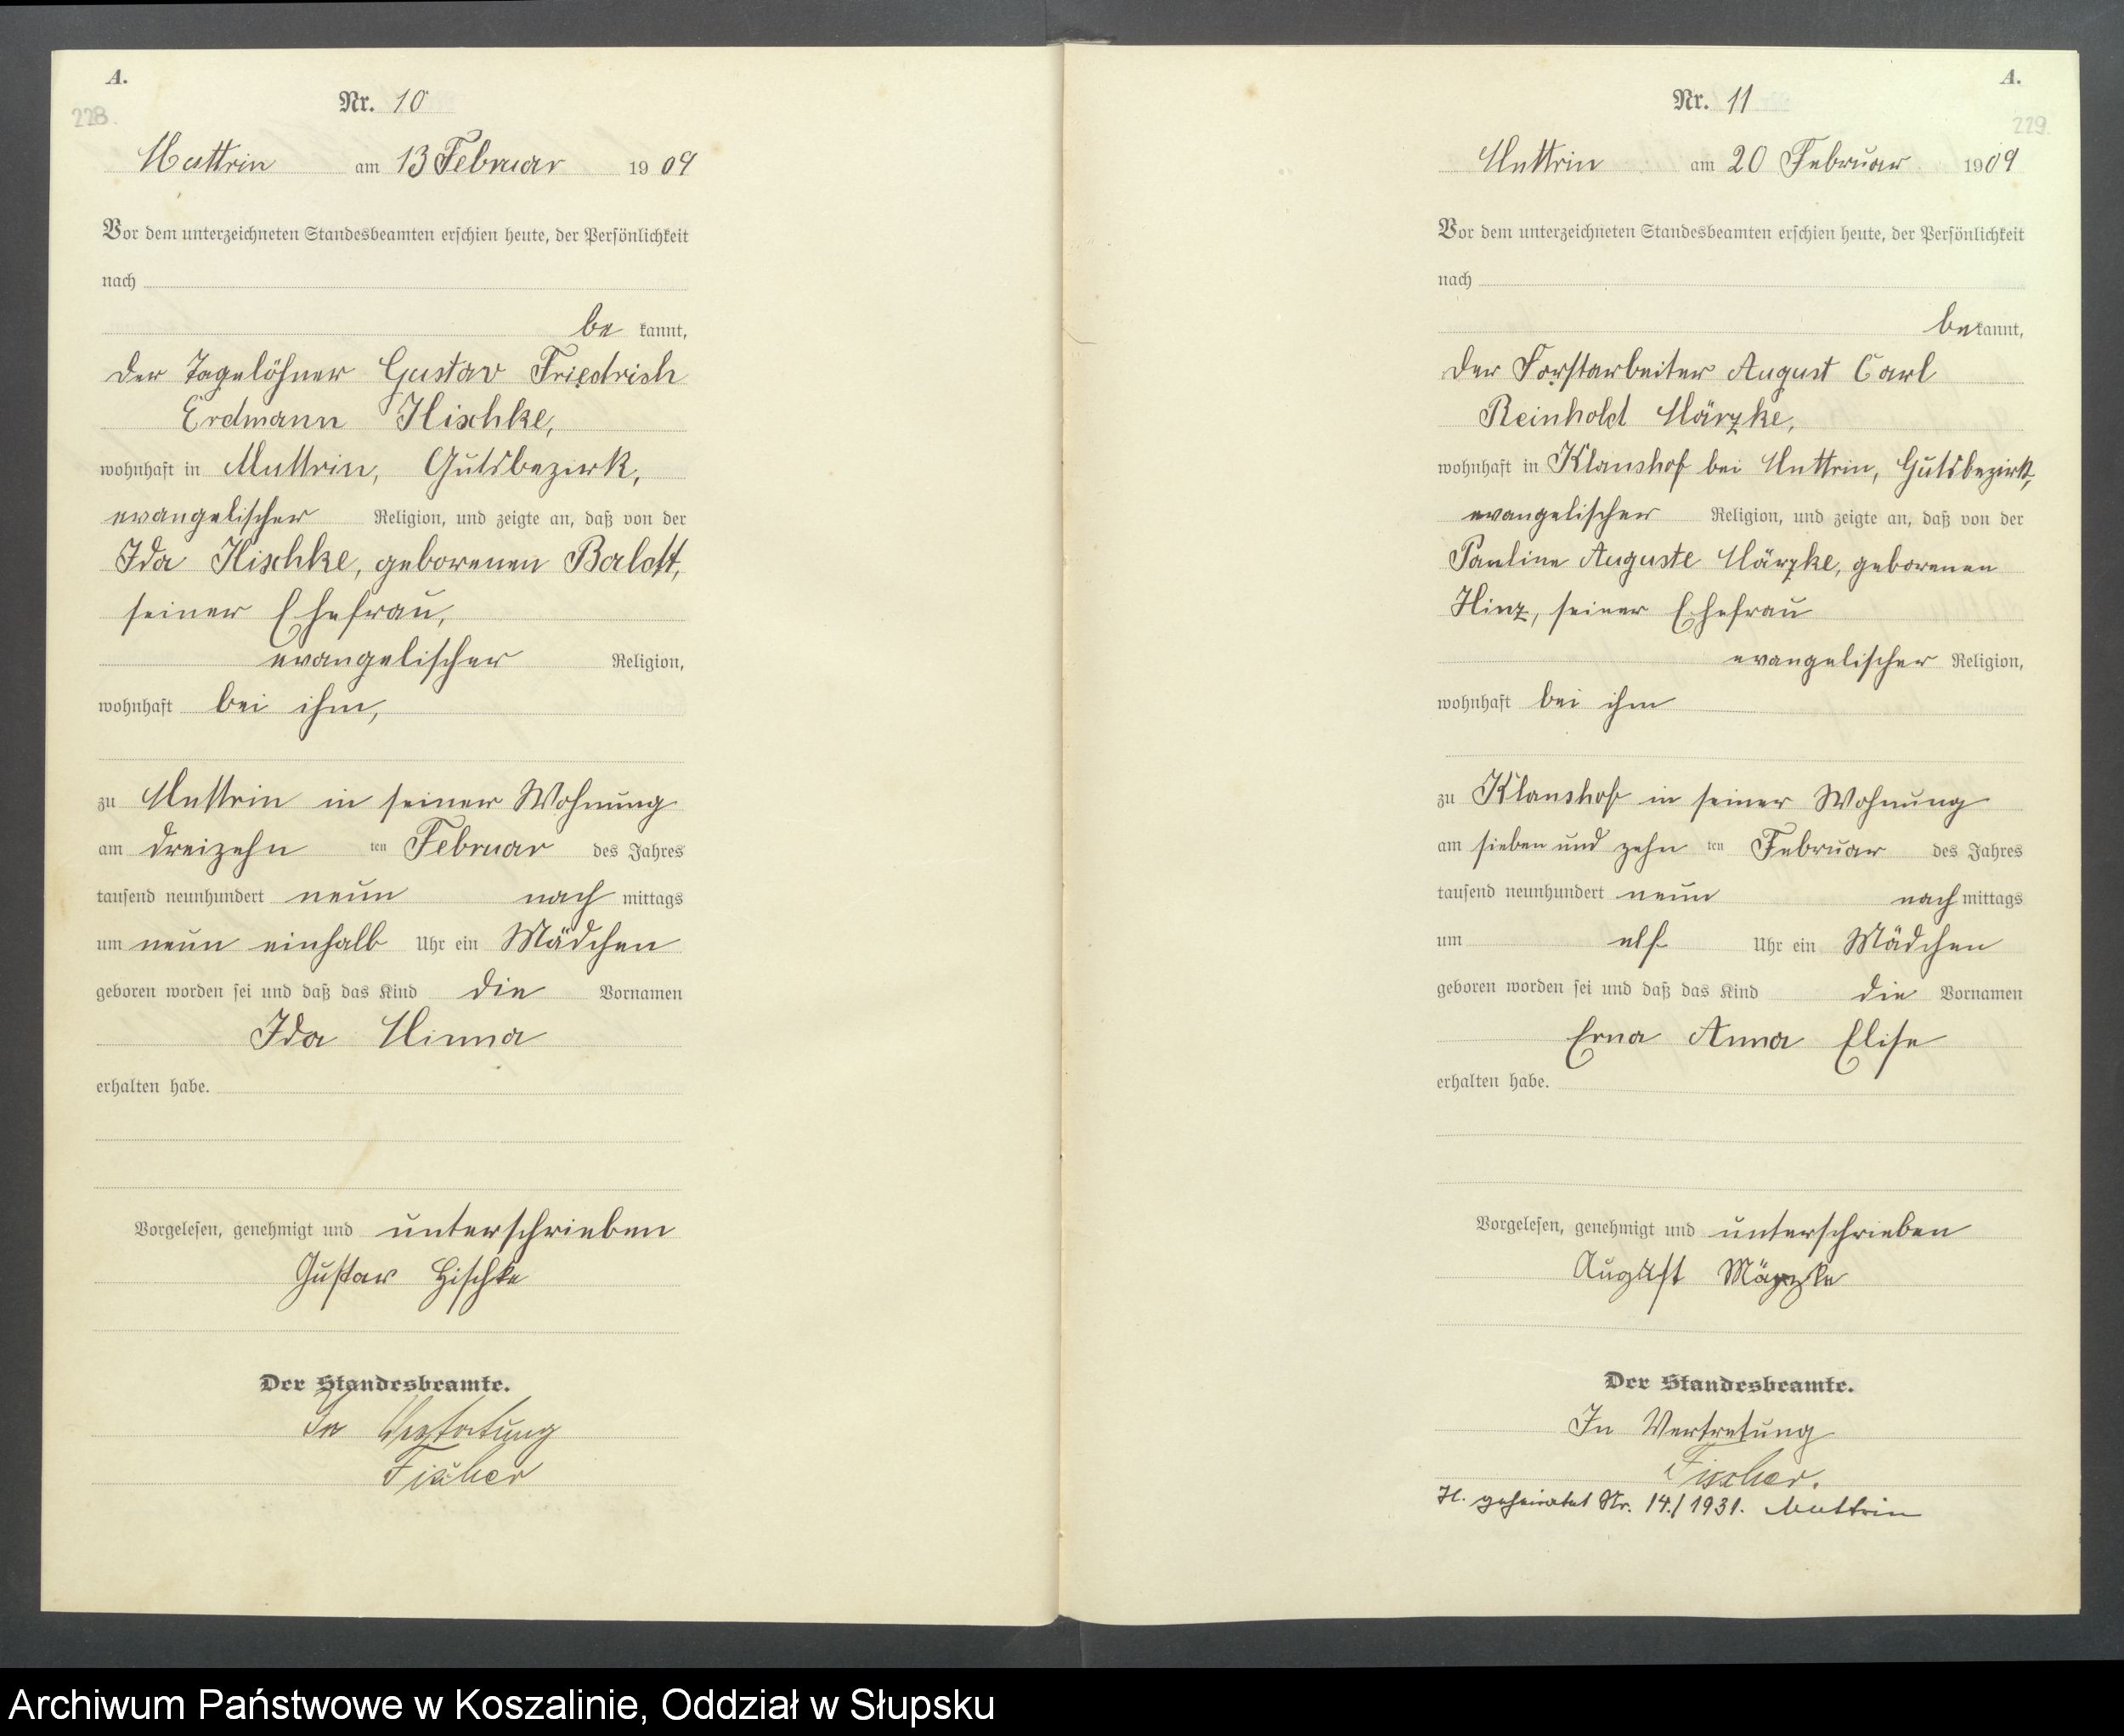 A.
228.
Nr. 10
Muttrin am 13 Februar 1909
Vor dem unterzeichneten Standesbeamten erschien heute, der Persönlichkeit
nach
be kannt,
der Tagelöhner Gustav Friedrich
Erdmann Hischke,
wohnhaft in Muttrin, Gutsbezirk,
evangelischer Religion, und zeigte an, daß von der
Ida Hischke, geborenen
seiner Ehefrau,
evangelischer Religion,
wohnhaft bei ihm,
zu Muttrin in seiner Wohnung
am dreizehn ten Februar des Jahres
tausend neunhundert neun nach mittags
um neun einhalb Uhr ein Mädchen
geboren worden sei und daß das Kind die Vornamen
Ida Minna
erhalten habe.
Vorgelesen, genehmigt und unterschrieben
Gustav Hischke
Der Standesbeamte.
In Vertretung
Fischer
A.
229.
Nr. 11
Muttrin am 20 Februar 1909
Vor dem unterzeichneten Standesbeamten erschien heute, der Persönlichkeit
nach
bekannt,
der Forstarbeiter August Carl
Reinhold Märzke,
wohnhaft in Klaushof bei Muttrin, Gutsbezirk,
evangelischer Religion, und zeigte an, daß von der
Pauline Auguste Märzke, geborenen
Hinz, seiner Ehefrau
evangelischer Religion,
wohnhaft bei ihm
zu Klaushof in seiner Wohnung
am sieben und zehn ten Februar des Jahres
tausend neunhundert neun nach mittags
um elf Uhr ein Mädchen
geboren worden sei und daß das Kind die Vornamen
Erna Anna Elise
erhalten habe.
Vorgelesen, genehmigt und unterschrieben
August Märzke
Der Standesbeamte.
In Vertretung
Fischer.
H. geheiratet Nr. 14./1931. Muttrin
Archiwum Państwowe w Koszalinie, Oddział w Słupsku